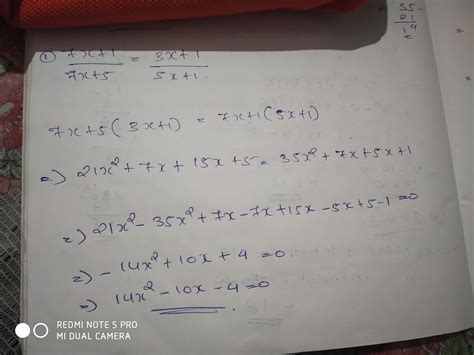 35.
21
14
① 7x+1/7x+5 = 3x+1/5x+1.
7x+5(3x+1) = 7x+1(5x+1)
=) 21x²+7x+15x+5 = 35x²+7x+5x+1
=) 21x²-35x²+7x-7x+15x-5x+5-1=0
=) -14x²+10x+4=0.
=) 14x²-10x-4=0.
REDMI NOTE 5 PRO
MI DUAL CAMERA